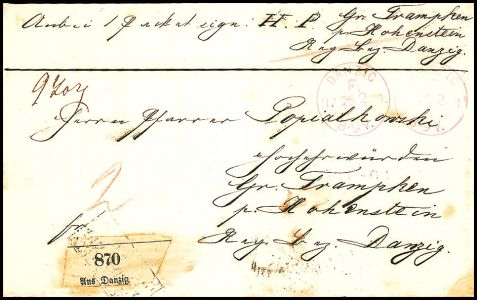 Anbei 1 Packet sign. H. P.
Gr. Trampken
p. Hohenstein
Reg. Bez. Danzig.
DANZIG
Herrn Pfarrer Popialkowski
Hochehrwürden
Gr. Trampken
p. Hohenstein
Reg. Bez. Danzig.
2
870
Aus Danzig.